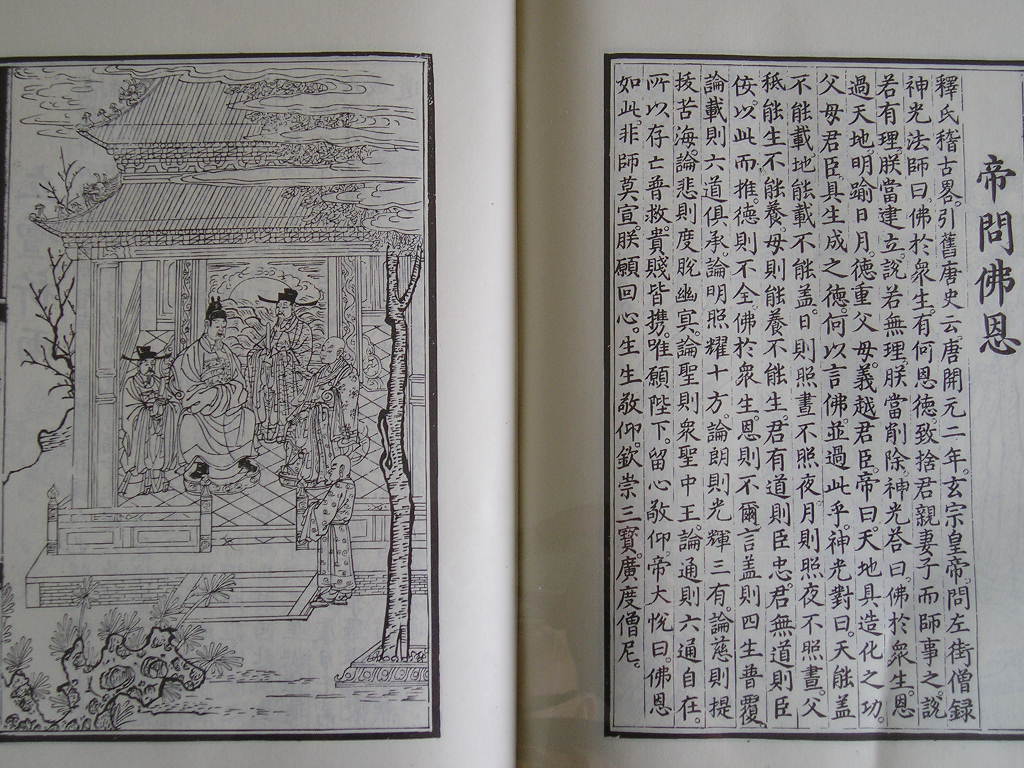 帝問佛恩
釋氏稽古畧。引舊唐史云。唐開元二年。玄宗皇帝。問左街僧録
神光法師曰。佛於衆生。有何恩徳。致捨君親妻子。而師事之。説
若有理。朕當建立。説若無理。朕當削除。神光答曰。佛於衆生。恩
過天地。明踰日月。徳重父母。義越君臣。帝曰。天地具造化之功。
父母君臣。具生成之徳。何以言佛。並過此乎。神光對曰。天能盖
不能載。地能載不能盖。日則照晝不照夜。月則照夜不照晝。父
秪能生不能養。母則能養不能生。君有道則臣忠。君無道則臣
佞。以此而推。徳則不全。佛於衆生。恩則不爾。言盖則四生普覆
論載則六道俱承。論明照耀十方。論朗則光輝三有。論慈則提
㧞苦海。論悲則度脫幽㝠。論聖則衆聖中王。論通則六通自在。
所以存亡普救。貴賤皆携。唯願陛下。留心敬仰。帝大悅曰。佛恩
如此。非師莫宣。朕願回心。生生敬仰。欽崇三寳。廣度僧尼。